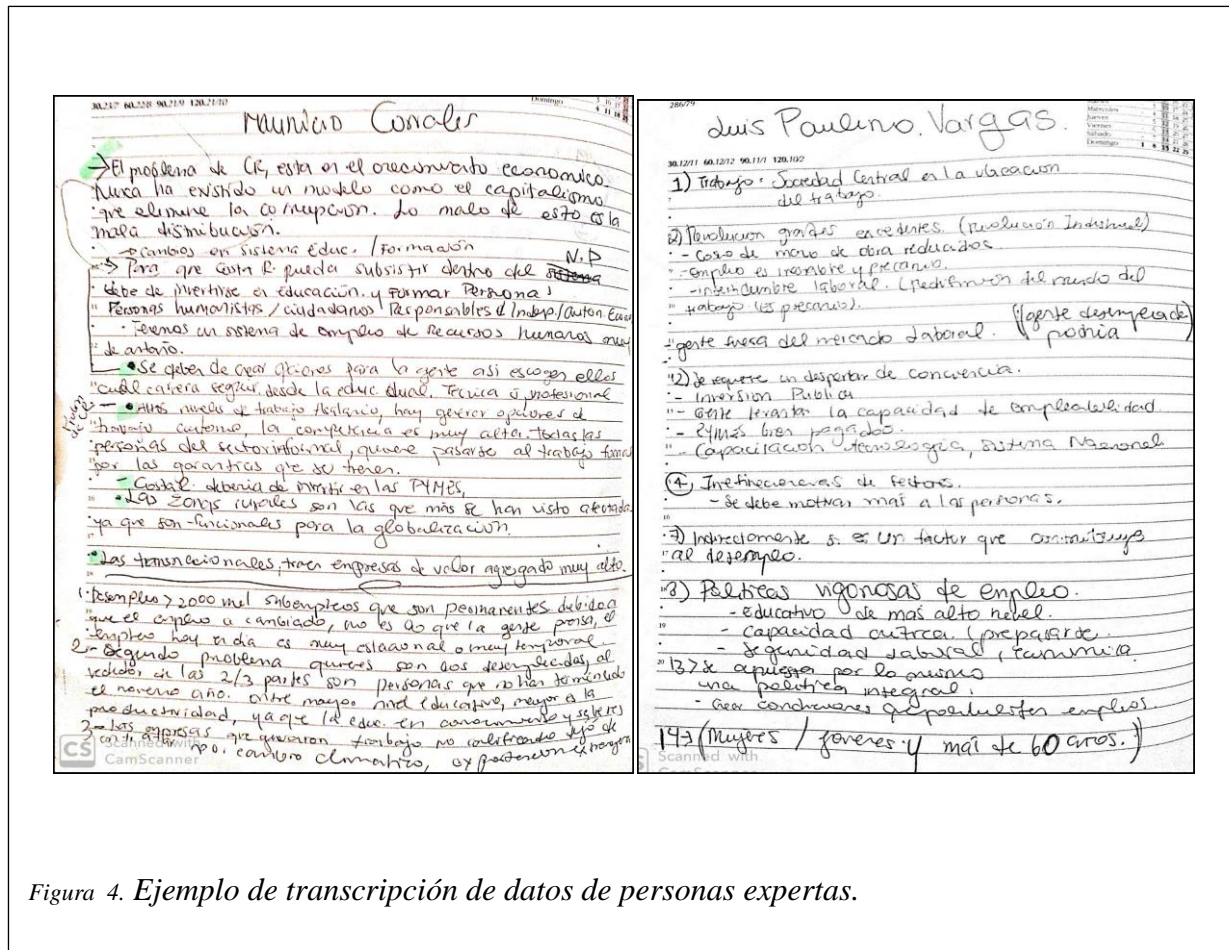 30.23/7 60.22/8 90.21/9 120.21/10
Domingo
Mauricio
→ El problema de CR, esta en el crecimiento economico.
Nunca ha existido un modelo como el capitalismo
que elimine la corrupción. Lo malo de esto es la
mala distribución.
→ cambios en sistema educ. / Formación
N.P
→ Para que Costa R. pueda subsistir dentro del sistema
debe de invertirse en educación. y Formar Personas
Personas humanistas / ciudadanos Responsables
• Tenemos un sistema de empleo de Recursos humanos muy
de antaño.
• Se deben de crear opciones para la gente asi escogen ellos
cuál carrera seguir. desde la educ. dual. Tecnica o profesional
• Altos niveles de trabajo hay generar opciones de
trabajo la competencia es muy alta. todas las
personas del sector informal, quiere pasarse al trabajo formal
por las garantías que se tienen.
- deberia de invertir en las PYMES,
• Las zonas rurales son las que más se han visto afectadas
ya que son funcionales para la globalización.
• Las transnacionales, traen empresas de valor agregado muy alto.
1. Desempleo > 2000 mil subempleos que son permanentes debido a
que el empleo a cambiado, no es lo que la gente piensa, el
empleo hoy en dia es muy estacional o muy temporal.
2- Segundo problema quienes son los desempleados, al
rededor de las 2/3 partes son personas que no han terminado
el noveno año. entre mayor nivel educativo, mayor es la
productividad, ya que la educ. en conocimiento y saberes
3- Las empresas que trabajo no calificado dejo de
cambio climatico,
CS Scanned with
CamScanner
286/79
Miercoles
Jueves
Viernes
Sábado
Domingo
Luis Paulino. Vargas.
30.12/11 60.12/12 90.11/1 120.10/2
1) Trabajo: Sociedad Central en la
del trabajo.
2) Revolucion grandes excedentes. (revolución Industrial)
- Coso de mano de obra reducidos.
- empleo es y precario.
- incertidumbre laboral. (redefinición del mundo del
trabajo (es precario).
gente fuera del mercado Laboral. (gente desempleada)
podria
12) Se requiere un despertar de conciencia.
- Inversion Publica
- Gente levantar la capacidad de empleabilidad.
- PYMES bien pagados.
- Capacitación tecnologia, sistema Nacional
4) de sectores.
- se debe motivar mas a las personas.
7) Indirectamente si es un factor que contribuye
al desempleo.
8) Politicas vigorosas de empleo.
- educativo de mas alto nevel.
- capacidad critica (prepararse.
- Seguridad Laboral,
13> se apuesta por lo mismo
una politica integral.
- Crear condiciones empleos.
14> (Mujeres / jovenes y mas de 60 años.)
Scanned with
Figura 4. Ejemplo de transcripción de datos de personas expertas.